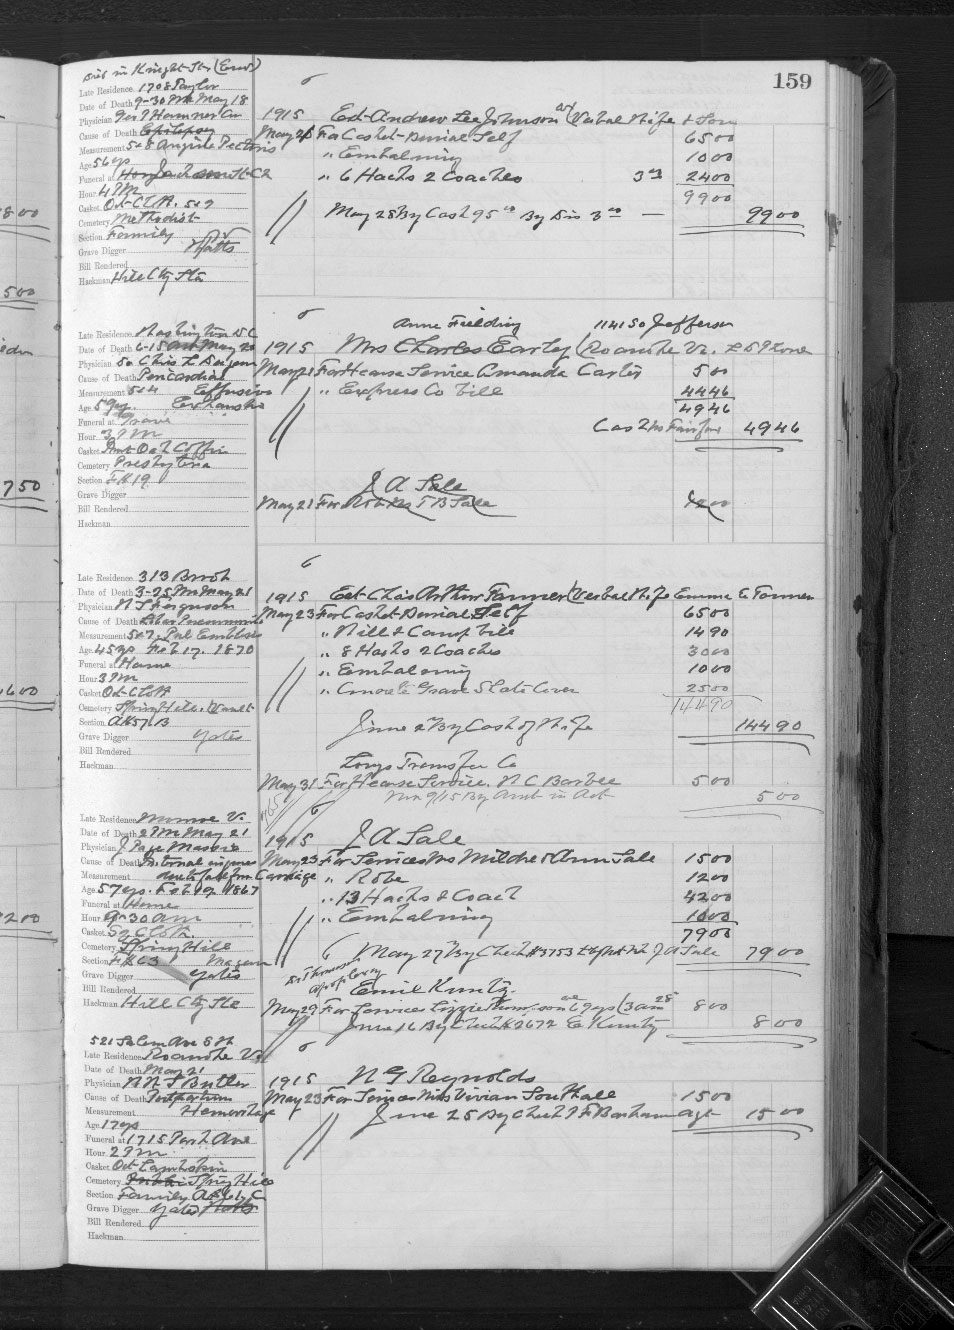 159
Died in Knight Str (Euro)
Late Residence 1708 Taylor
Date of Death 9-30 PM May 18
Physician Geo P Hamner Cor
Cause of Death Epilepsy
Measurement 5x8 Angina Pectoris
Age 56 yrs
Funeral at Jackson St Ch
Hour 4 PM
Casket Oct Cloth. 5x9
Cemetery Methodist
Section Family
Grave Digger Watts
Bill Rendered
Hackman Hill City Sta
1915 Est. Andrew Lee Johnson Verbal Wife & Son
May 28 For Casket Burial Self 65 00
" Embalming 10 00
" 6 Hacks 2 Coaches 3 00 24 00
99 00
May 28 By Cash 95 00 By Dis 3 00 — 99 00
Late Residence Washington D.C.
Date of Death 6-15 AM May 20
Physician Chas L
Cause of Death Pericardial
Measurement 5x4 Effusion
Age 59 yrs. Exhaustion
Funeral at Grave
Hour 3 PM
Casket Oak Coffin
Cemetery Presbyteria
Section F 19
Grave Digger
Bill Rendered
Hackman
Anne Fielding 1141 So Jefferson
1915 Mrs Charles Early (Roanoke Va.
May 21 For Hearse Service Amanda Carter 5 00
" Express Co bill 44 46
49 46
49 46
J A Sale
May 21 For Robe Mrs T B Sale
Late Residence 313 Brook
Date of Death 3-25 PM May 21
Physician N T Ferguson
Cause of Death Lobar Pneumonia
Measurement 5x7. Pul Embolism
Age 45 yrs Feb 17. 1870
Funeral at Home
Hour 3 PM
Casket Oct Cloth
Cemetery Spring Hill. Vault
Section
Grave Digger Yates
Bill Rendered
Hackman
1915 Est Chas Arthur Farmer (Verbal Wife Emma E Farmer
May 23 For Casket Burial Self 65 00
" Will & Camp bill 14 90
" 8 Hacks 2 Coaches 30 00
" Embalming 10 00
" Concrete Grave Slate Cover 25 00
144 90
June 2 By Cash of Wife 144 90
Longs Transfer Co
May 31 For Hearse Service. N C Barbee 5 00
Nov 9/15 By Amt in Act 5 00
Late Residence Monroe V.
Date of Death 2 PM May 21
Physician J Page Massie
Cause of Death Internal injuries
Measurement due to fall from Carriage
Age 57 yrs. Feb 19 1867
Funeral at Home
Hour 9-30 am
Casket Sq Cloth
Cemetery Spring Hill
Section
Grave Digger Yates
Bill Rendered
Hackman Hill City Sta
1915 J A Sale
May 23 For Services Mrs Mildred Ann Sale 15 00
" Robe 12 00
" 13 Hacks & Coach 42 00
" Embalming 10 00
79 00
May 27 By Check #3753 J A Sale 79 00
Emil Kuntz
May 29 For Services Lizzie 8 00
June 16 By Check #2672 E Kuntz 8 00
521 Salem Ave S W
Late Residence Roanoke Va
Date of Death May 21
Physician W W S Butler
Cause of Death Postpartum
Measurement Hemorrhage
Age 17 yrs
Funeral at 1715 Park Ave
Hour 2 PM
Casket Oct Lambskin
Cemetery Spring Hill
Section Family
Grave Digger Yates
Bill Rendered
Hackman
1915 N G Reynolds
May 23 For Services Mrs Vivian Southall 15 00
June 25 By Check P F Barham agt 15 00